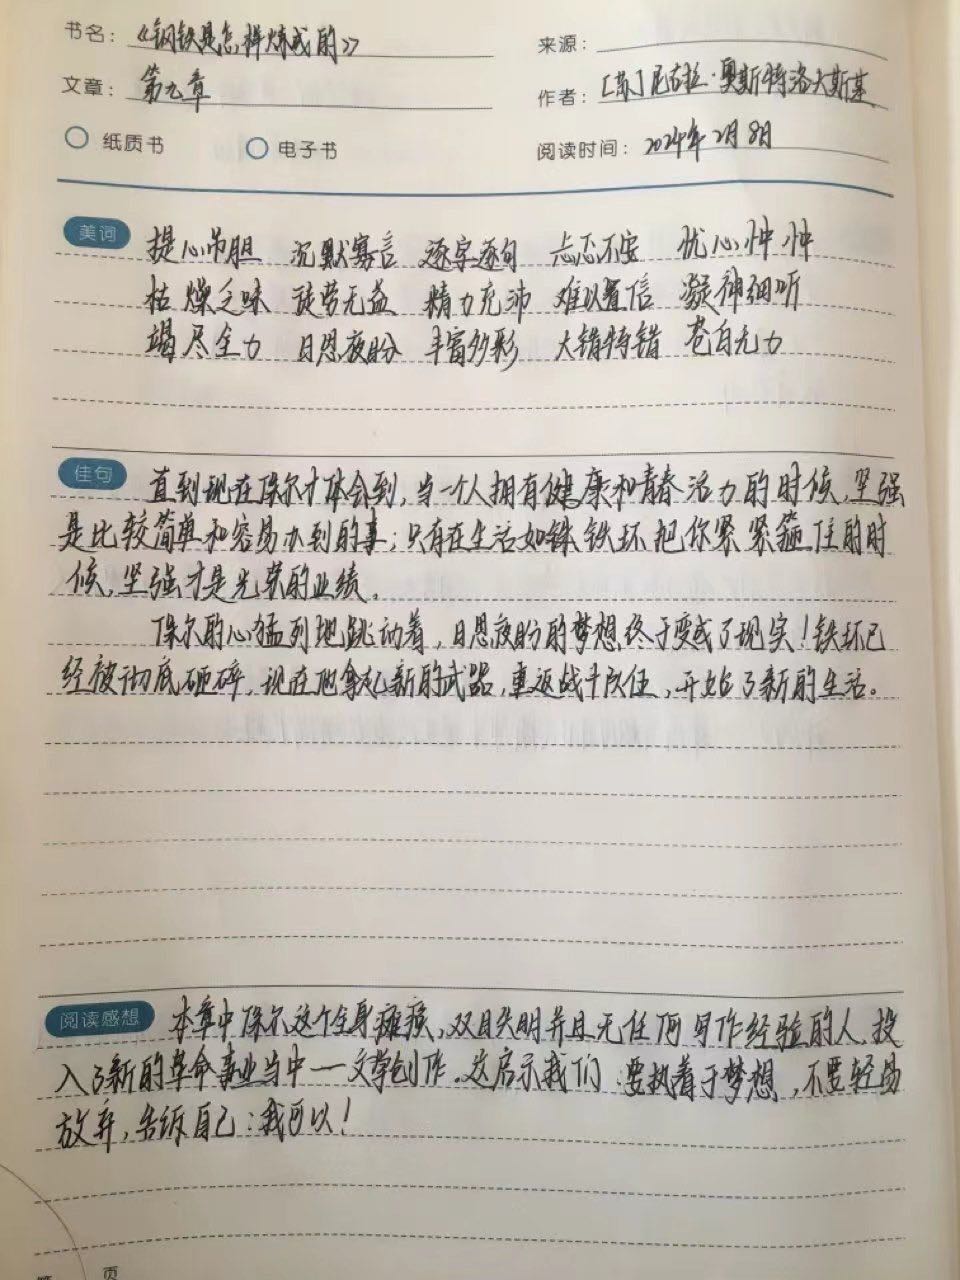 书名：《钢铁是怎样炼成的》
来源：
文章：第九章
作者：[苏]尼古拉·奥斯特洛夫斯基
纸质书 电子书
阅读时间：2024年2月8日
美词
提心吊胆 沉默寡言 逐字逐句 忐忑不安 忧心忡忡
枯燥乏味 徒劳无益 精力充沛 难以置信 凝神细听
竭尽全力 日思夜盼 丰富多彩 大错特错 苍白无力
佳句 直到现在保尔才体会到，当一个人拥有健康和青春活力的时候，坚强
是比较简单和容易办到的事；只有在生活如铁环把你紧紧箍住的时
候，坚强才是光荣的业绩。
保尔的心猛烈地跳动着，日思夜盼的梦想终于变成了现实！铁环已
经被彻底砸碎，现在他拿起新的武器，重返战斗队伍，开始了新的生活。
阅读感想 本章中保尔这个全身瘫痪、双目失明并且无任何写作经验的人，投
入了新的革命事业当中——文学创作。这启示我们：要执着于梦想，不要轻易
放弃，告诉自己：我可以！
第 页